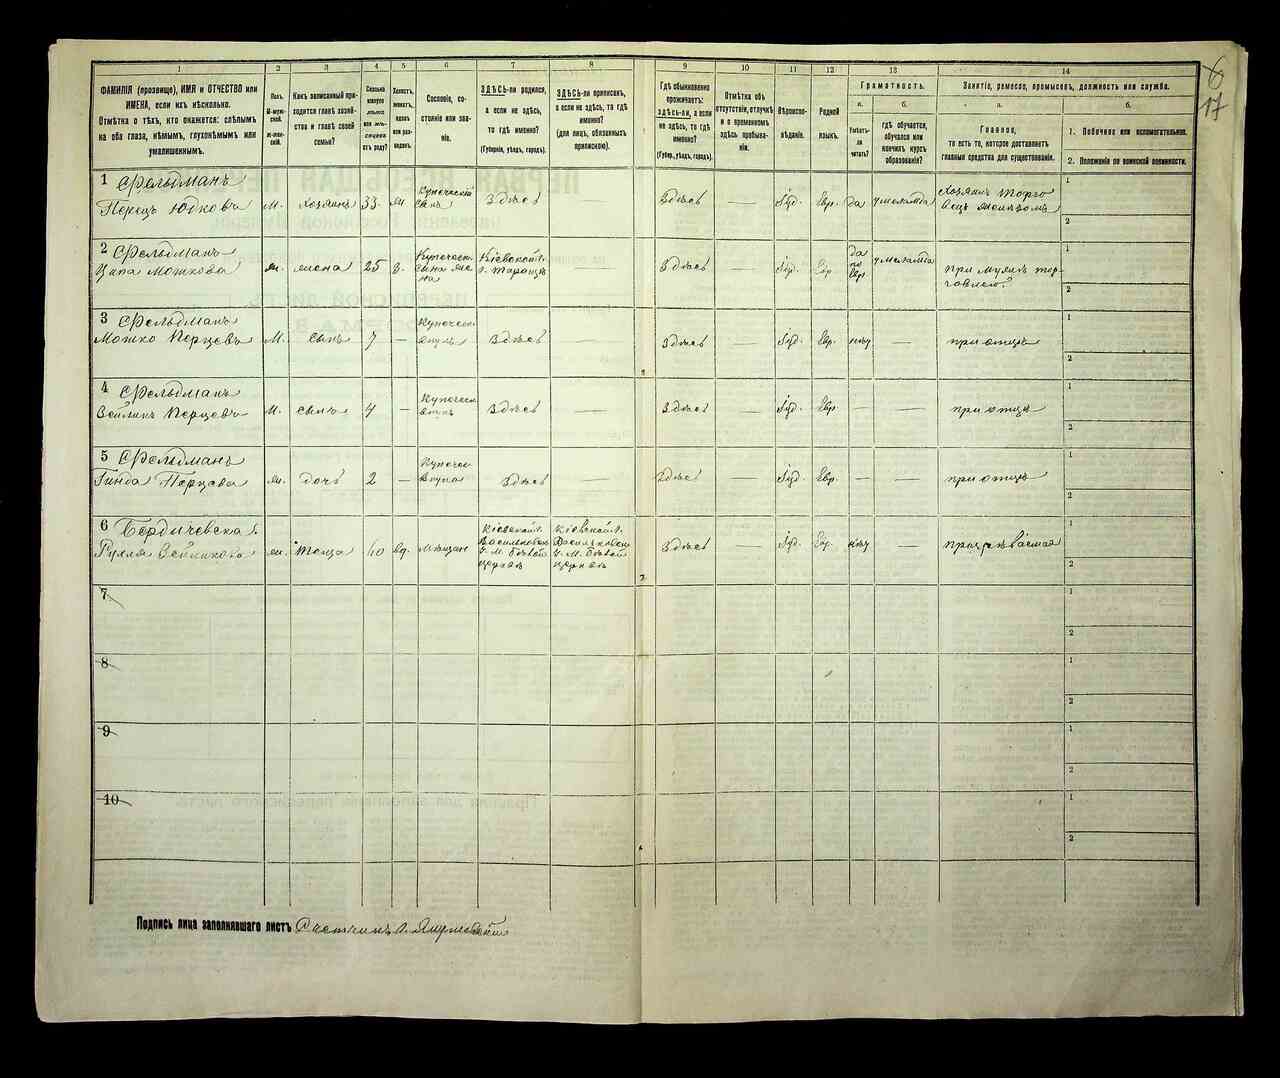 6
17
1 2 3 4 5 6 7 8 9 10 11 12 13 14
ФАМИЛІЯ (прозвище), ИМЯ и ОТЧЕСТВО или
ИМЕНА, если ихъ нѣсколько.
Отмѣтка о тѣхъ, кто окажется: слѣпымъ
на оба глаза, нѣмымъ, глухонѣмымъ или
умалишеннымъ.
Полъ.
М-муж-
ской.
ж-жен-
скій.
Какъ записанный при-
ходится главѣ хозяй-
ства и главѣ своей
семьи?
Сколько
минуло
лѣтъ
или мѣ-
сяцевъ
отъ роду?
Холостъ,
женатъ,
вдовъ
или раз-
веденъ.
Сословіе, со-
стояніе или зва-
ніе.
ЗДѢСЬ-ли родился,
а если не здѣсь,
то гдѣ именно?
(Губернія, уѣздъ, городъ).
ЗДѢСЬ-ли приписанъ,
а если не здѣсь, то гдѣ
именно?
(для лицъ, обязанныхъ
припискою).
Гдѣ обыкновенно
проживаетъ:
ЗДѢСЬ-ли, а если
не здѣсь, то гдѣ
именно?
(Губер., уѣздъ, городъ).
Отмѣтка объ
отсутствіи, отлучкѣ
и о временномъ
здѣсь пребыва-
ніи.
Вѣроиспо-
вѣданіе.
Родной
языкъ.
Грамотность.
а.
Умѣетъ-
ли
читать?
б.
гдѣ обучается,
обучался или
кончилъ курсъ
образованія?
Занятіе, ремесло, промыселъ, должность или служба.
а.
Главное,
то есть то, которое доставляетъ
главныя средства для существованія.
б.
1. Побочное или вспомогательное.
2. Положеніе по воинской повинности.
1 Фельдманъ
Перецъ Юдковъ М. Хозяинъ 33. ж. Купеческій
сынъ Здѣсь Здѣсь — Іуд. Евр. да у меламда Хозяинъ Торго
1
2
2 Фельдманъ
Ципа Мошкова ж. жена 25 з. Купеческ.
сына же
на Кіевской г.
г. Таращѣ Здѣсь — Іуд. Евр да
по
евр. у меламда при мужѣ тор-
говлею.
1
2
3 Фельдманъ
Мошко Перцевъ М. сынъ 7 — Купеческ.
внукъ Здѣсь — Здѣсь — Іуд. Евр. нѣт — при отцѣ
1
2
4 Фельдманъ
Вейликъ Перцевъ М. сынъ 4 — Купеческ.
внукъ Здѣсь — Здѣсь — Іуд Евр. — — при отцѣ
1
2
5 Фельдманъ
Гинда Перцева ж. дочь 2 — Купечес.
внука Здѣсь — Здѣсь — Іуд Евр. — — при отцѣ
1
2
6 Бердичевска
Рухля Вейликова ж. теща 60 вд. Мѣщан. Кіевской г.
Васильковск.
у. М. Бѣлой
церкви Кіевской г.
Васильковск.
у. М. Бѣлой
церкви Здѣсь — Іуд. Евр. нѣт —
1
2
7
1
2
8
1
2
9
1
2
10
1
2
Подпись лица заполнявшаго листъ Счетчикъ